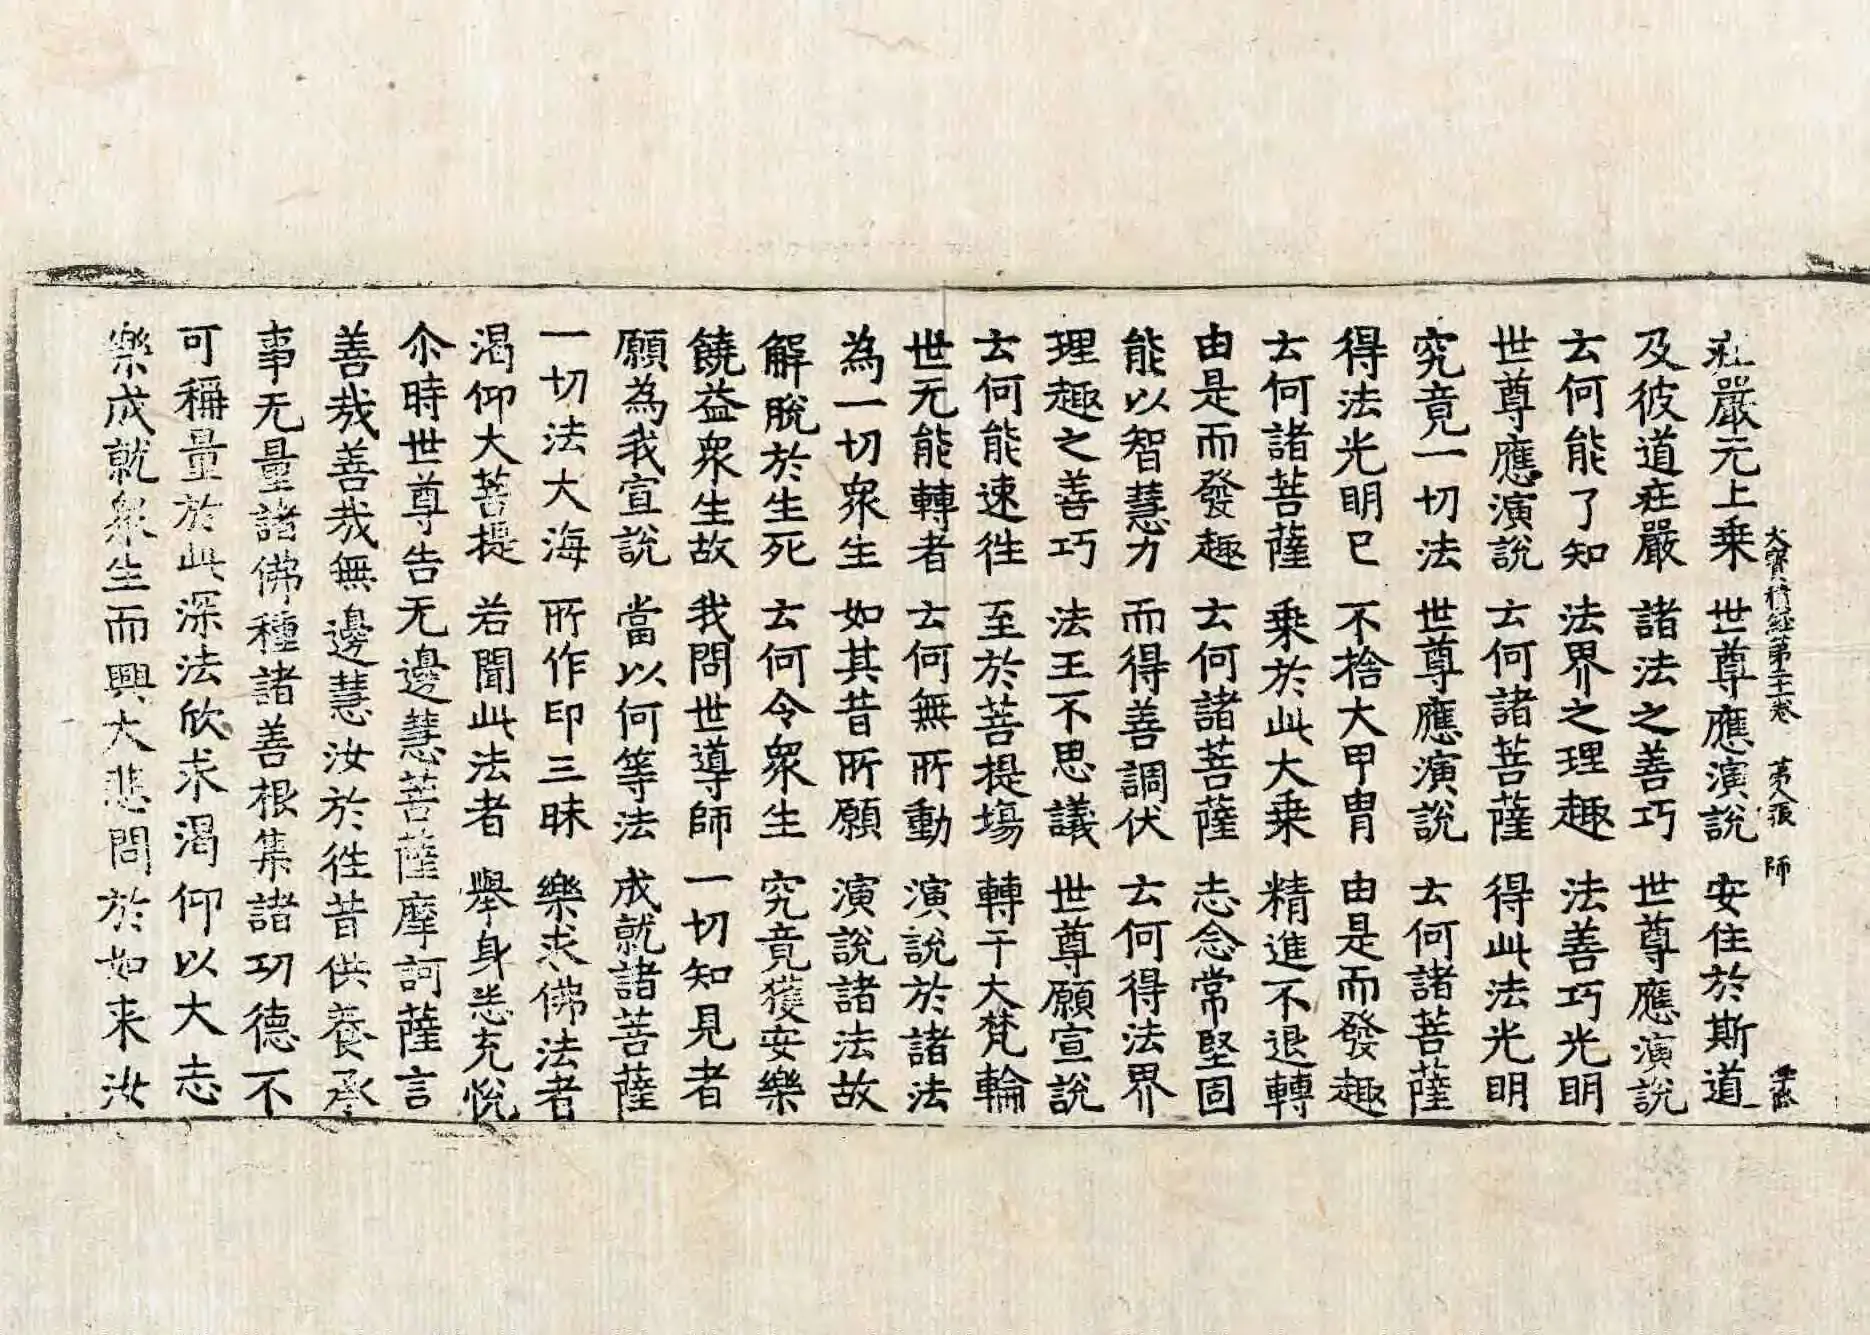 大寶積經第二十一卷 第八張 師
莊嚴无上乗 世尊應演說 安住於斯道
及彼道莊嚴 諸法之善巧 世尊應演說
云何能了知 法界之理趣 法善巧光明
世尊應演說 云何諸菩薩 得此法光明
究竟一切法 世尊應演說 云何諸菩薩
得法光明已 不捨大甲冑 由是而發趣
云何諸菩薩 乗於此大乗 精進不退轉
由是而發趣 云何諸菩薩 志念常堅固
能以智慧力 而得善調伏 云何得法界
理趣之善巧 法王不思議 世尊願宣說
云何能速徃 至於菩提場 轉于大梵輪
世无能轉者 云何無所動 演說於諸法
為一切衆生 如其昔所願 演說諸法故
解脫於生死 云何令衆生 究竟獲安樂
饒益衆生故 我問世導師 一切知見者
願為我宣說 當以何等法 成就諸菩薩
一切法大海 所作印三昧 樂求佛法者
渴仰大菩提 若聞此法者 舉身悉充悅
尒時世尊告无邊慧菩薩摩訶薩言
善㢤善㢤無邊慧汝於徃昔供養承
事无量諸佛種諸善根集諸功德不
可稱量於此深法欣求渴仰以大志
樂成就衆生而興大悲問於如来汝